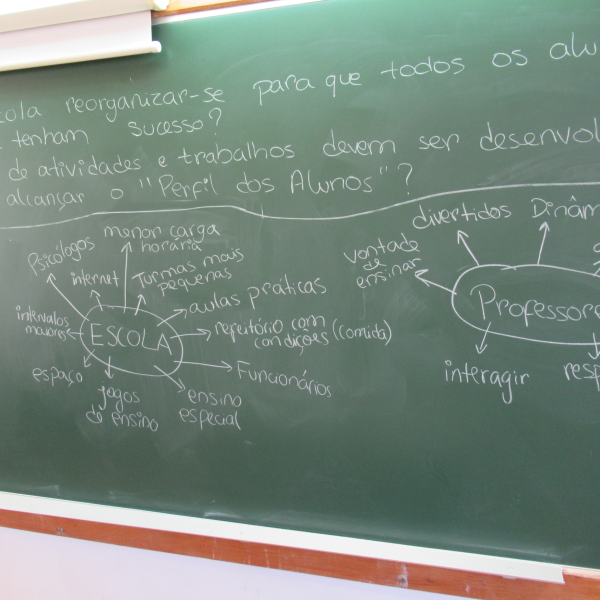 cola reorganizar-se para que todos os alu
tenham sucesso?
de atividades e trabalhos devem ser desenvol
alcançar o "Perfil dos Alunos"?
Psicólogos
menor carga
horária
internet
Turmas mais
pequenas
aulas práticas
intervalos
maiores
ESCOLA
refeitório com
condições (comida)
espaço
jogos
de ensino
ensino
especial
Funcionários
vontade
de
ensinar
divertidos
Dinâm
Professore
interagir
resp